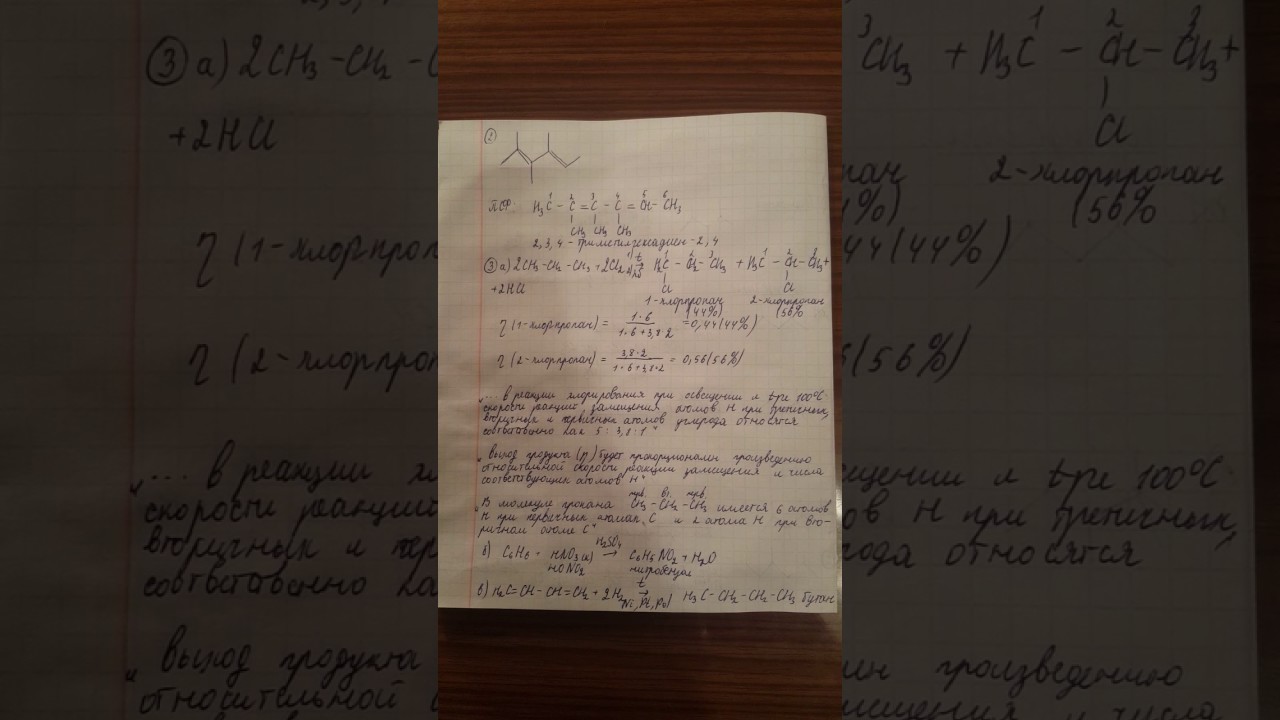 ②
ПСФ H₃C¹ – C² = C³ – C⁴ = CH⁵ – CH₃⁶
CH₃ CH₃ CH₃
2,3,4 - триметилгексадиен - 2,4
③ а) 2CH₃–CH₂–CH₃ + 2Cl₂ → H₂C¹ – CH₂² – CH₃³ + H₃C¹ – CH² – CH₃³ +
+2HCl Cl Cl
1-хлорпропан 2-хлорпропан
(44%) (56%
η (1-хлорпропан) = 1·6 / 1·6+3,8·2 = 0,44 (44%)
η (2-хлорпропан) = 3,8·2 / 1·6+3,8·2 = 0,56 (56%)
"... в реакции хлорирования при освещении и t-ре 100°C
скорости реакций замещения атомов H при третичных,
вторичных и первичных атомов углерода относятся
соответственно как 5 : 3,8 : 1"
"Выход продукта (η) будет пропорционален произведению
относительной скорости реакции замещения и числа
соответствующих атомов H"
перв. вт. перв.
"В молекуле пропана CH₃ – CH₂ – CH₃ имеется 6 атомов
H при первичных атомах C и 2 атома H при вто-
ричном атоме C"
H₂SO₄
б) C₆H₆ + HNO₃(к) → C₆H₅NO₂ + H₂O
HONO₂ нитробензол
в) H₂C=CH–CH=CH₂ + 2H₂ → H₃C–CH₂–CH₂–CH₃ бутан
t
Ni, Pt, Pd